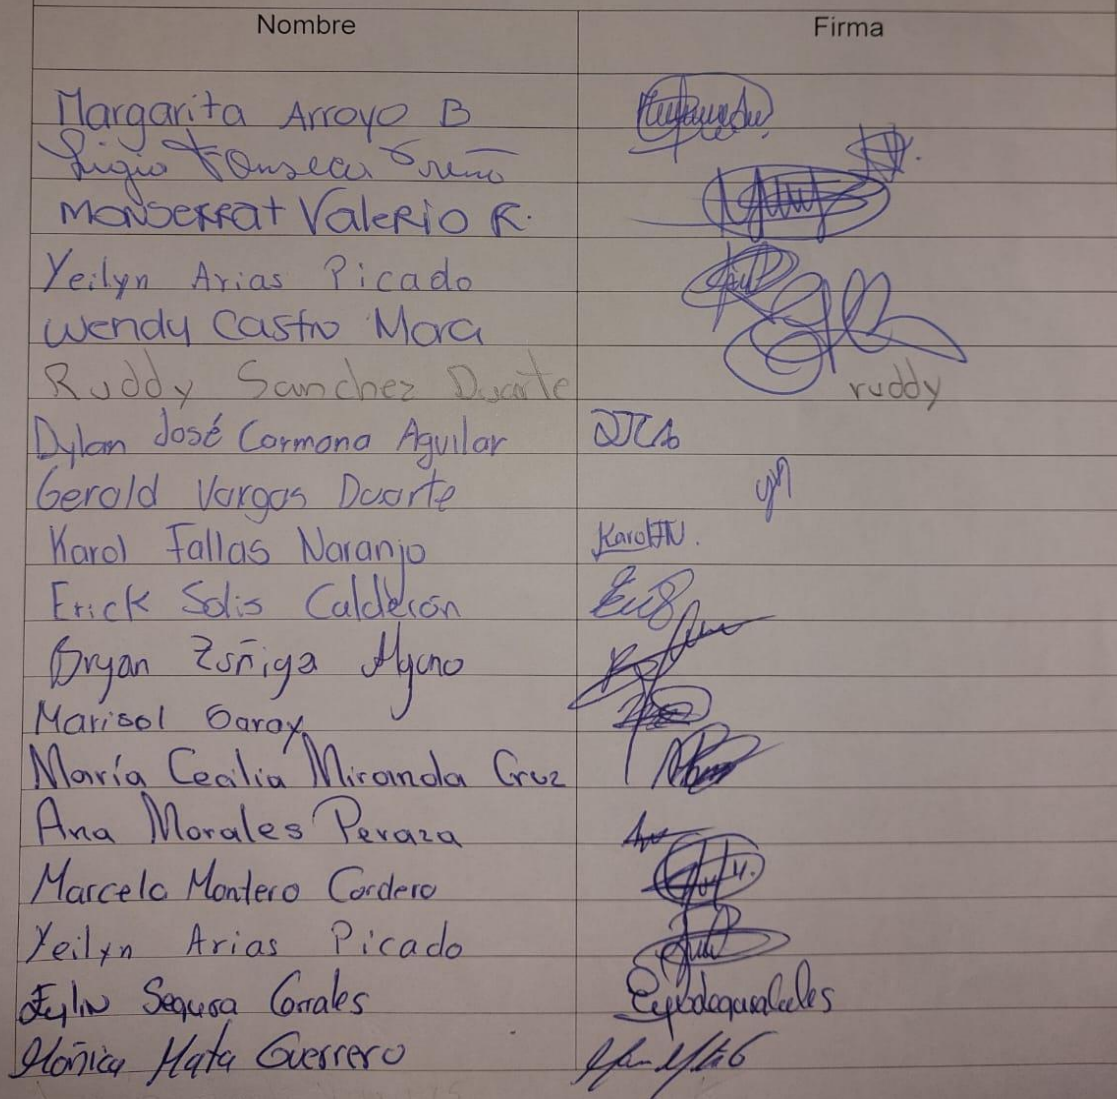 Nombre Firma
Margarita Arroyo B
Ligio Fonseca
Monserrat Valerio R.
Yeilyn Arias Picado
Wendy Castro Mora
Ruddy Sanchez Duarte ruddy
Dylan José Carmona Aguilar
Gerald Vargas Duarte
Karol Fallas Naranjo KarolFN.
Erick Solis Calderón
Bryan Zúñiga
Marisol Garay
María Cecilia Miranda Cruz
Ana Morales Peraza
Marcela Montero Cordero
Yeilyn Arias Picado
Eylin Segura Corrales
Mónica Mata Guerrero